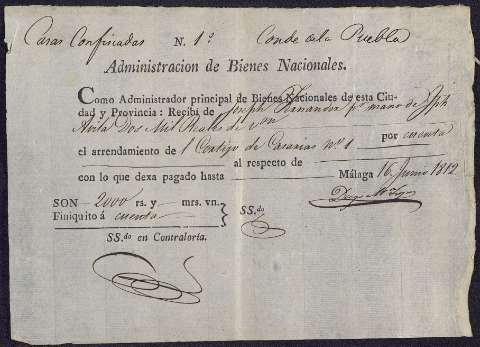 Casas Confiscadas N. 1º Conde de la Puebla
Administracion de Bienes Nacionales.
Como Administrador principal de Bienes Nacionales de esta Ciu-
dad y Provincia: Recibi de Joseph Hernandez pr mano de Jph
Avila Dos Mil Reales de von por cuenta
el arrendamiento de l Cortijo de Casarias nº 1
con lo que dexa pagado hasta al respecto de
Málaga 16 Junio 1812
SON 2000 rs. y mrs. vn.
Finiquito á cuenta
SS.do
SS.do en Contaloría.